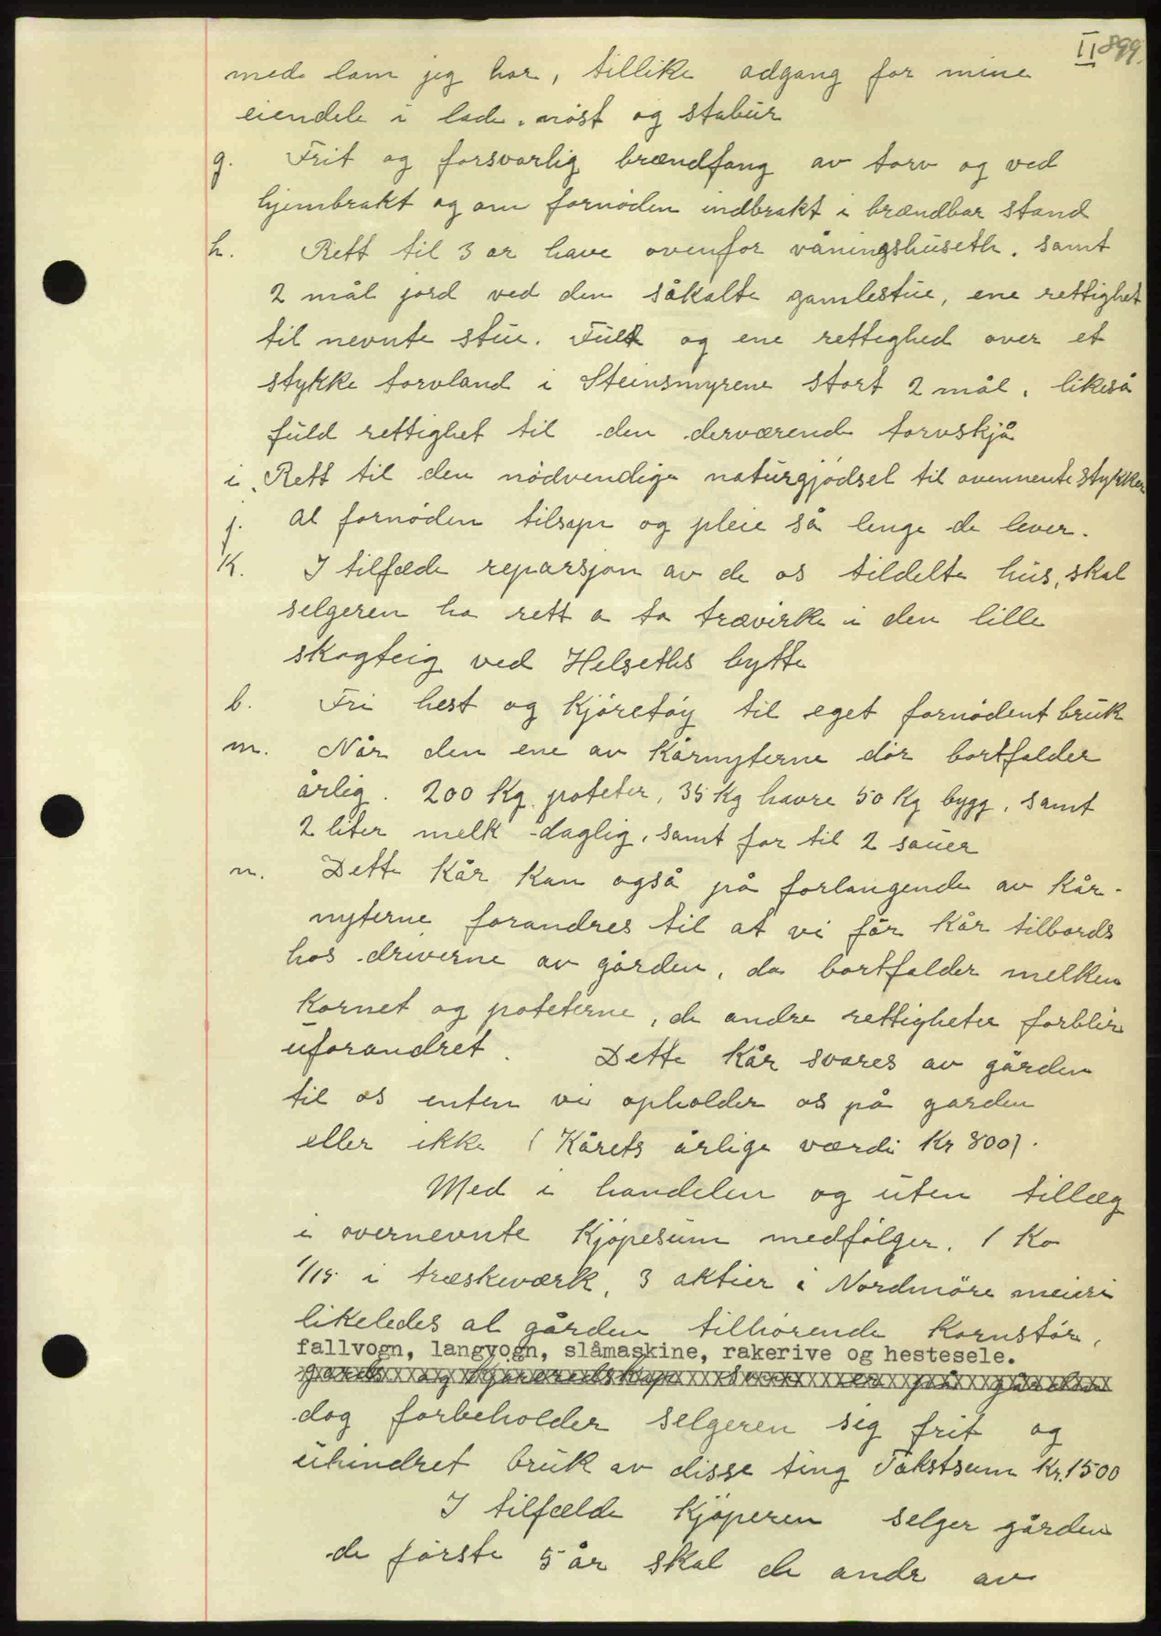 II 899.
med lam jeg har, tillike adgang for mine
eiendele i lade, nöst og stabur
g. Frit og forsvarlig brændfang av torv og ved
hjembrakt og om fornöden indbrakt i brændbar stand
h. Rett til 3 ar have ovenfor våningshuseth. samt
2 mål jord ved den såkalte gamlestue, ene rettighet
til nevnte stue. Fuld og ene rettighed over et
stykke torvland i Steinsmyrene stort 2 mål, likeså
fuld rettighet til den derværende torvskjå
i. Rett til den nödvendige naturgjödsel til ovennente stykker
j. al fornöden tilsyn og pleie så lenge de lever.
K. I tilfæde reparsjon av de os tildelte hus, skal
selgeren ha rett a ta trævirke i den lille
skogteig ved Helseths bytte
l. Fri hest og Kjöretöy til eget fornödent bruk
m. Når den ene av Kårnyterne dör bortfalder
årlig. 200 Kg. poteter, 35 Kg havre 50 Kg bygg, samt
2 liter melk daglig, samt for til 2 sauer
n. Dette Kår Kan også på forlangende av Kår-
nyterne forandres til at vi får Kår tilbords
hos driverne av gården, da bortfalder melken
Kornet og poteterne, de andre rettigheter forblir
uforandret. Dette Kår svares av gården
til os enten vi opholder os på garden
eller ikke (Kårets årlige værdi Kr 800).
Med i handelen og uten tillæg
i overnevnte Kjöpesum medfölger. 1 Ko
1/15 i træskeværk, 3 aktier i Nordmöre meieri
likeledes al gården tilhörende Kornstör,
fallvogn, langvogn, slåmaskine, rakerive og hestesele.
dog forbeholder selgeren sig frit og
uhindret bruk av disse ting Takstsum Kr. 1500
I tilfælde Kjöperen selger gården
de förste 5 år skal de andre av